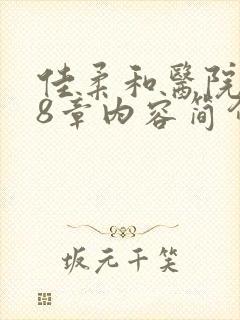 佳柔和醫院
8章内容简介
坂元千笑